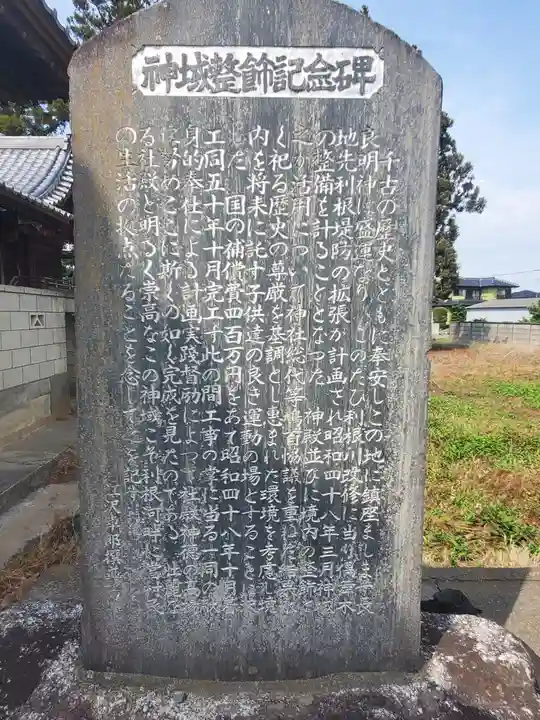 神域整飾記念碑
千古の歴史とともに奉安しこの地に鎮座まします長
良明神は盛運なりしこのたび利根川改修に当り
地先利根堤防の拡張が計画され昭和四十八年三月神域
の整備を計ることとなつた 神殿並びに境内の整飾と
之が活用について神社総代等鳩首協議を重ねた結果
く祀る歴史の尊厳を基調とし恵まれた環境を考慮し境
内を将来に託す子供達の良き運動の場とすることに
した 国の補償費四百万円をあて昭和四十八年十月着
工同五十年十月完工す此の間工事の掌に当る一同の献
身的奉仕による計画実践督励によつて社殿神徳の
に努めここに斯くの如く完成を見たのである
る社殿と明るく崇高なこの神域こそ利根河畔に
の生活の拠点たることを念じてここを記す